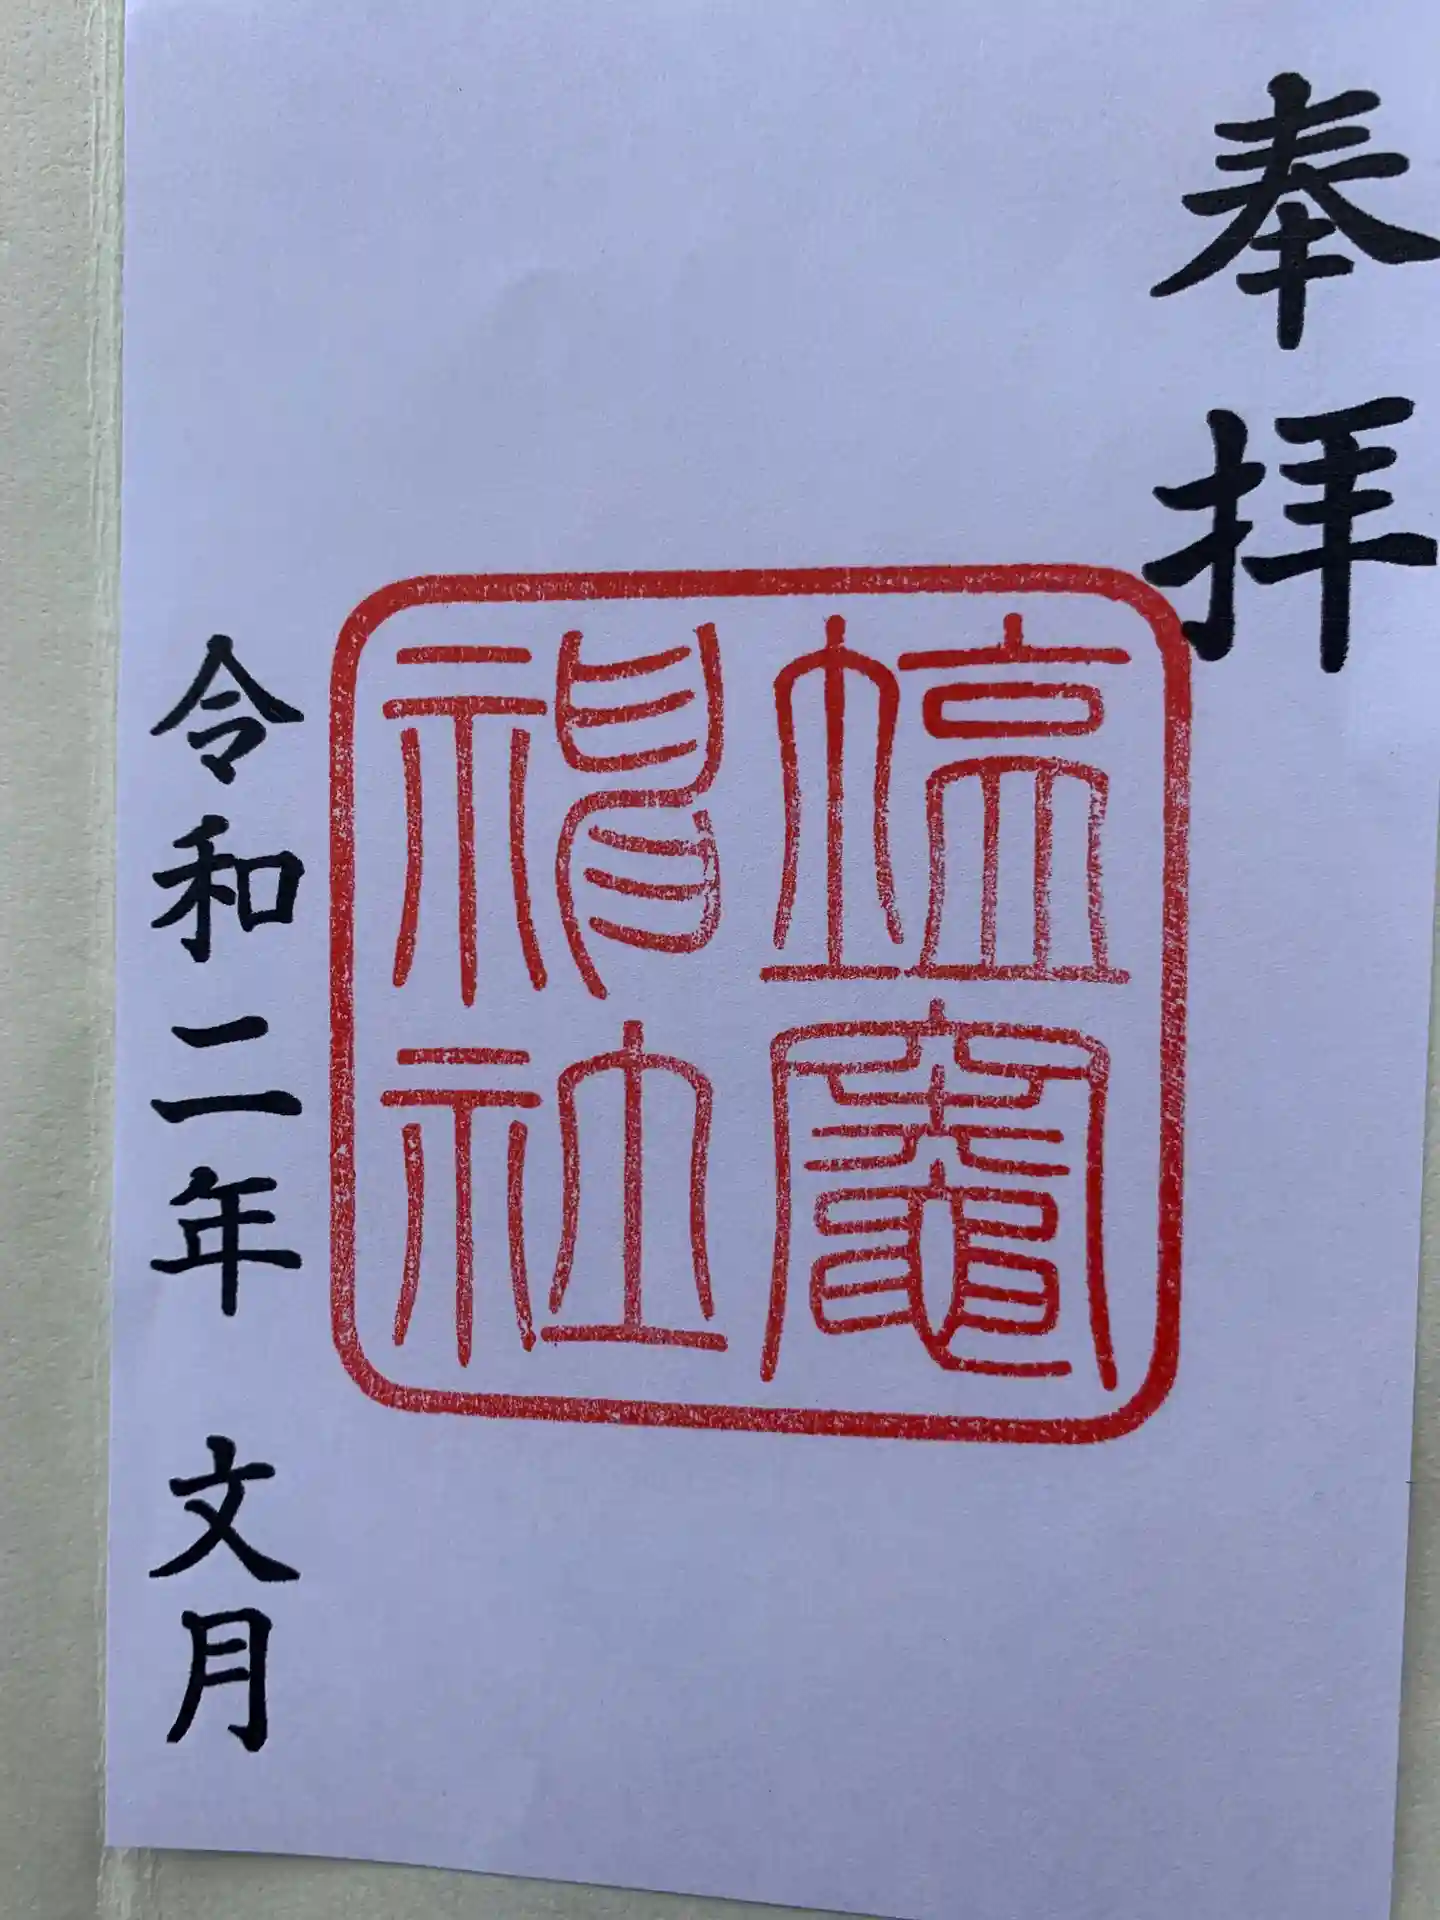 奉拝
塩竈
神社
令和二年 文月